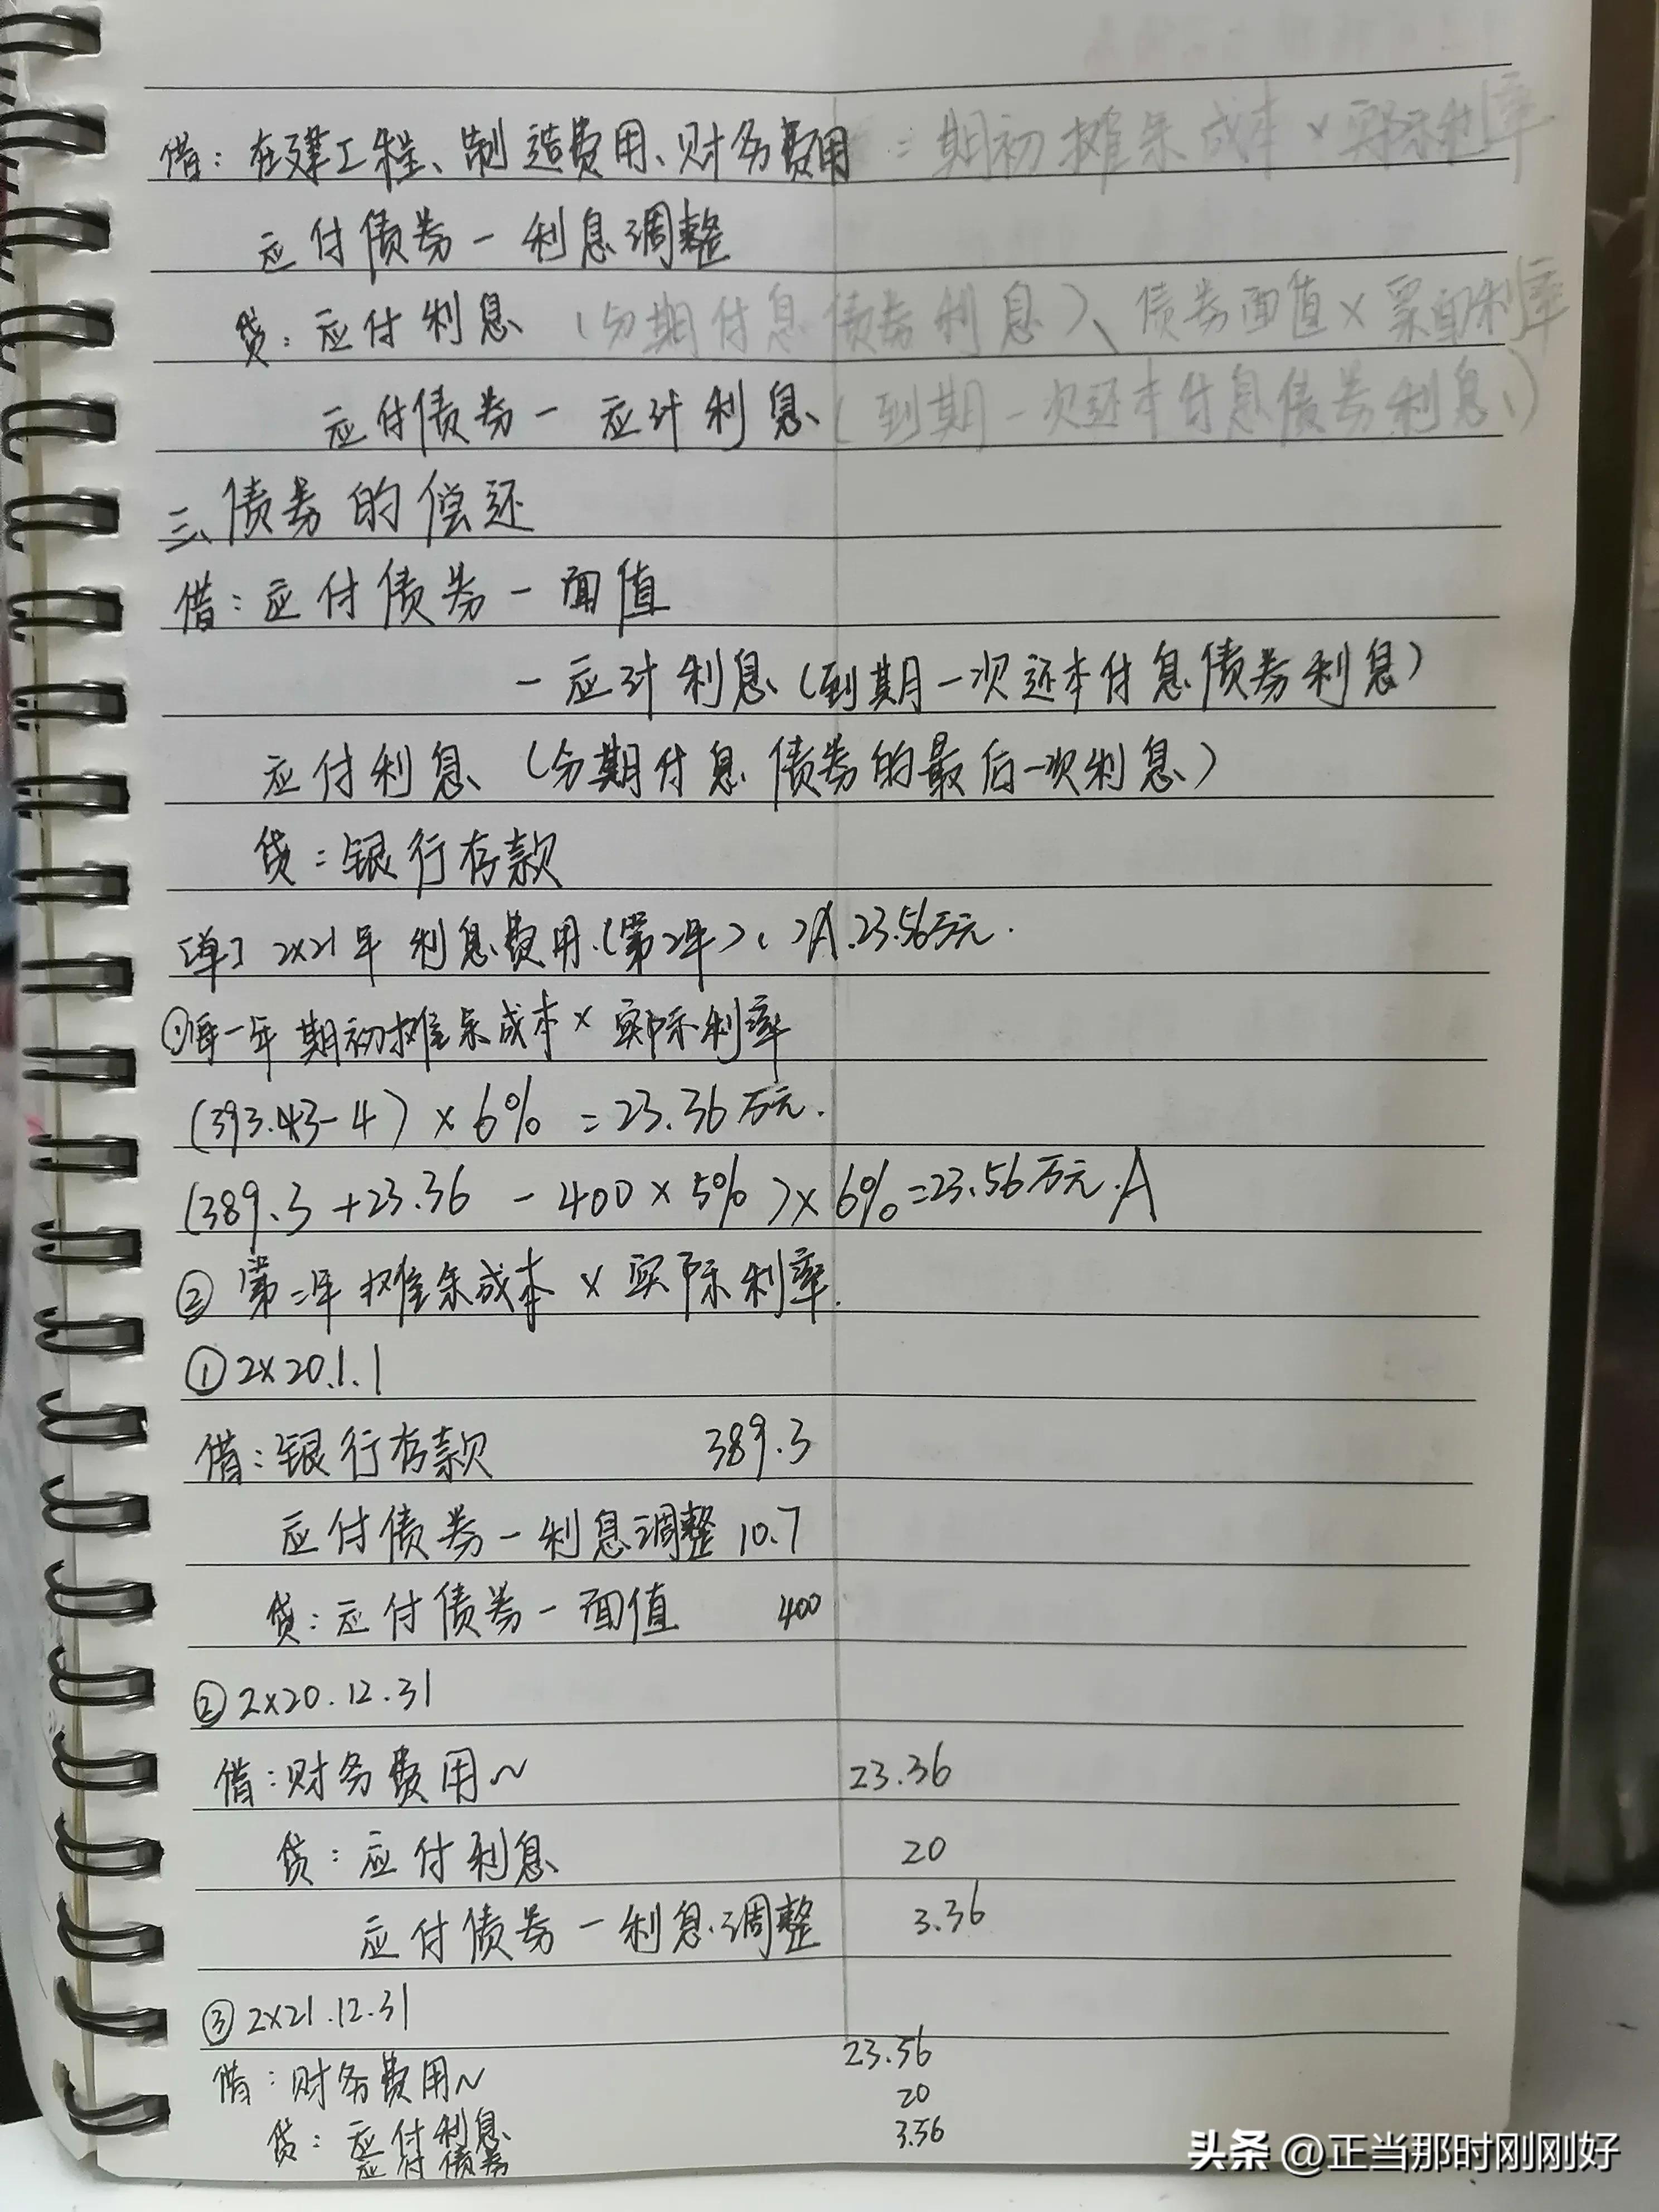 借：在建工程、制造费用、财务费用 = 期初摊余成本×实际利率
应付债券－利息调整
贷：应付利息（分期付息债券利息）、债券面值×票面利率
应付债券－应计利息（到期一次还本付息债券利息）
三、债券的偿还
借：应付债券－面值
－应计利息（到期一次还本付息债券利息）
应付利息（分期付息债券的最后一次利息）
贷：银行存款
[单] 2x21年利息费用（第2年）（ ）A.23.56万元.
①每一年期初摊余成本×实际利率
(393.43-4)×6% =23.36万元.
(389.3+23.36-400×5%)×6%=23.56万元.A
②第二年摊余成本×实际利率.
①2x20.1.1
借：银行存款 389.3
应付债券－利息调整 10.7
贷：应付债券－面值 400
②2x20.12.31
借：财务费用~ 23.36
贷：应付利息 20
应付债券－利息调整 3.36
③2x21.12.31
借：财务费用~ 23.56
贷：应付利息 20
应付债券 3.56
头条 @正当那时刚刚好